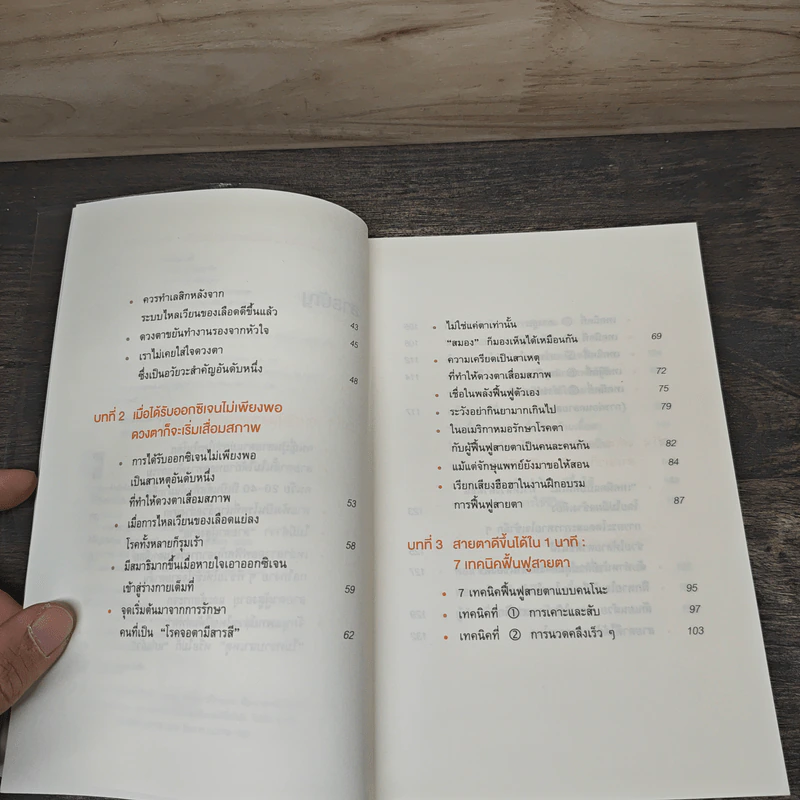 • ควรทำเลสิกหลังจาก
ระบบไหลเวียนของเลือดดีขึ้นแล้ว 43
• ดวงตาขยันทำงานรองจากหัวใจ 45
• เราไม่เคยใส่ใจดวงตา
ซึ่งเป็นอวัยวะสำคัญอันดับหนึ่ง 48
บทที่ 2 เมื่อได้รับออกซิเจนไม่เพียงพอ
ดวงตาก็จะเริ่มเสื่อมสภาพ
• การได้รับออกซิเจนไม่เพียงพอ
เป็นสาเหตุอันดับหนึ่ง
ที่ทำให้ดวงตาเสื่อมสภาพ 53
• เมื่อการไหลเวียนของเลือดแย่ลง
โรคทั้งหลายก็รุมเร้า 58
• มีสมาธิมากขึ้นเมื่อหายใจเอาออกซิเจน
เข้าสู่ร่างกายเต็มที่ 59
• จุดเริ่มต้นมาจากการรักษา
คนที่เป็น "โรคจอตามีสารสี" 62
• ไม่ใช่แค่ตาเท่านั้น
"สมอง" ก็มองเห็นได้เหมือนกัน 69
• ความเครียดเป็นสาเหตุ
ที่ทำให้ดวงตาเสื่อมสภาพ 72
• เชื่อในพลังฟื้นฟูตัวเอง 75
• ระวังอย่ากินยามากเกินไป 79
• ในอเมริกาหมอรักษาโรคตา
กับผู้ฟื้นฟูสายตาเป็นคนละคนกัน 82
• แม้แต่จักษุแพทย์ยังมาขอให้สอน 84
• เรียกเสียงฮือฮาในงานฝึกอบรม
การฟื้นฟูสายตา 87
บทที่ 3 สายตาดีขึ้นได้ใน 1 นาที :
7 เทคนิคฟื้นฟูสายตา
• 7 เทคนิคฟื้นฟูสายตาแบบคนโนะ 95
• เทคนิคที่ ① การเคาะและสับ 97
• เทคนิคที่ ② การนวดคลึงเร็ว ๆ 103